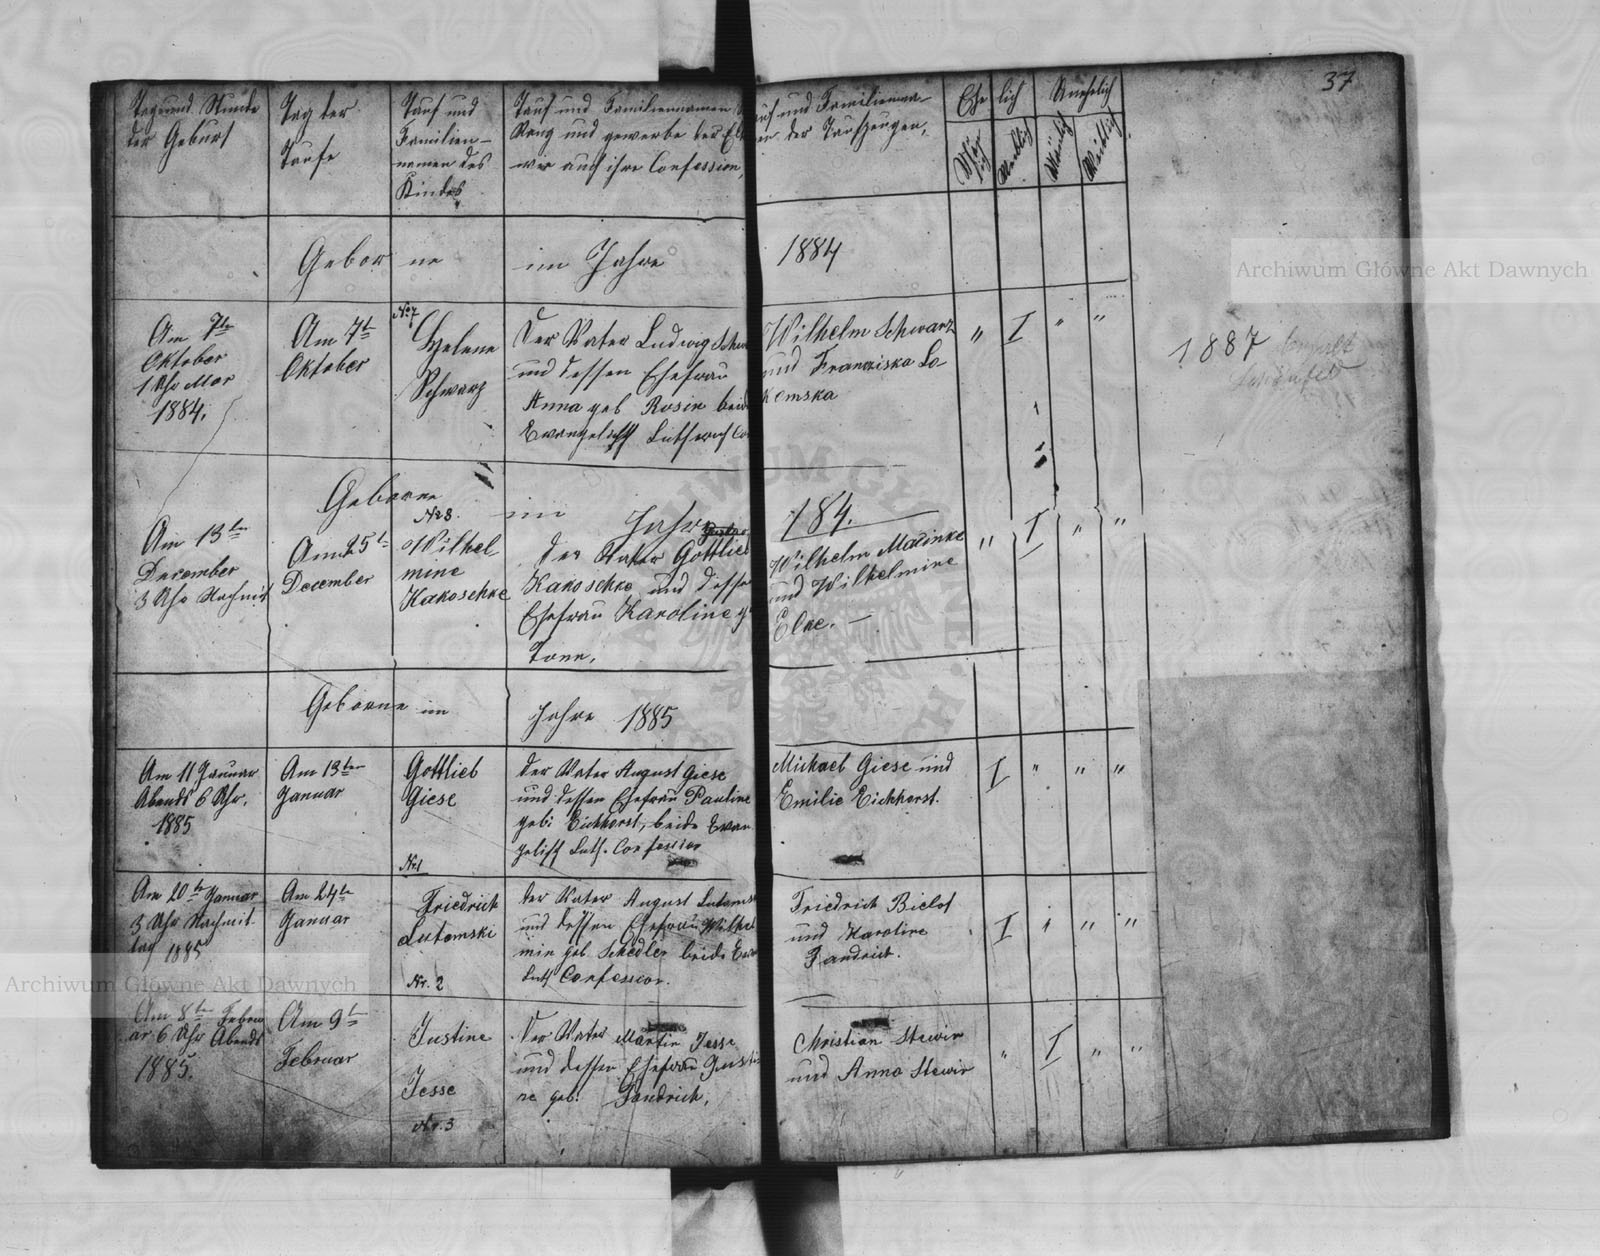 37
Tag und Stunde
der Geburt
Tag der
Taufe
Tauf und
Familien-
namen des
Kindes
Tauf und Familiennamen
Rang und gewerbe der El
wie auch ihre Confession,
auf und Familienna-
en der Taufzeugen,
Ehe lich
Unehelich
Weiblich
Männlich
Weiblich
Geborne im Jahre 1884
Am 7te
Oktober
1 Uhr Mor
1884.
Am 7t
Oktober
No 7
Helene
Schwarz
Der Vater Ludwig Schwa
und dessen Ehefrau
Anna geb Rosin beide
Evangelisch Lutherisch Co
Wilhelm Schwarz
und Franziska Lo-
kemska
" I " "
1887
Geborne im Jahre 184.
Am 13ten
December
3 Uhr Nachmit
Am 25t
December
No 8.
Wilhel
mine
Kakoschke
der Vater Gottlieb
Kakoschke und dessen
Ehefrau Karoline g
Tonn.
Wilhelm Malinke
und Wilhelmine
Elke. —
" I " "
Geborne im Jahre 1885
Am 11 Januar
Abends 6 Uhr.
1885
Am 13ten
Januar
Gottlieb
Giese
No 1
der Vater August Giese
und dessen Ehefrau Pauline
geb: Eichhorst, beide Evan
gelisch Luth. Confession
Michael Giese und
Emilie Eichhorst.
I " " "
Am 20te Januar
3 Uhr Nachmit
tag 1885
Am 24te
Januar
Friedrich
Lutomski
Nr. 2
der Vater August Lutomsk
und dessen Ehefrau Wilhel
min geb Schedler beide Evan
Luth Confession.
Friedrich Bielof
und Karoline
Fandrich.
I " " "
Am 8te Febru
ar 6 Uhr Abends
1885.
Am 9t
Februar
Justine
Jesse
Nr. 3
Der Vater Martin Jesse
und dessen Ehefrau Justi
ne geb: Fandrich.
Christian Stewir
und Anna Stewir
" I " "
Archiwum Główne Akt Dawnych
Archiwum Główne Akt Dawnych